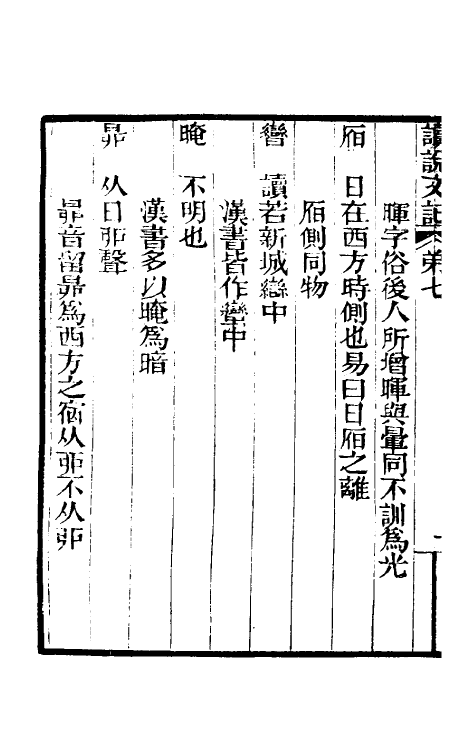 讀說文記 第七 一
暉字俗後人所增暉與暈同不訓爲光
𣅔 日在西方時側也易曰日𣅔之離
𣅔側同物
曫 讀若新城䜌中
漢書皆作蠻中
晻 不明也
漢書多以晻爲暗
昴 从日丣聲
昴音留昴爲西方之宿从丣不从戼